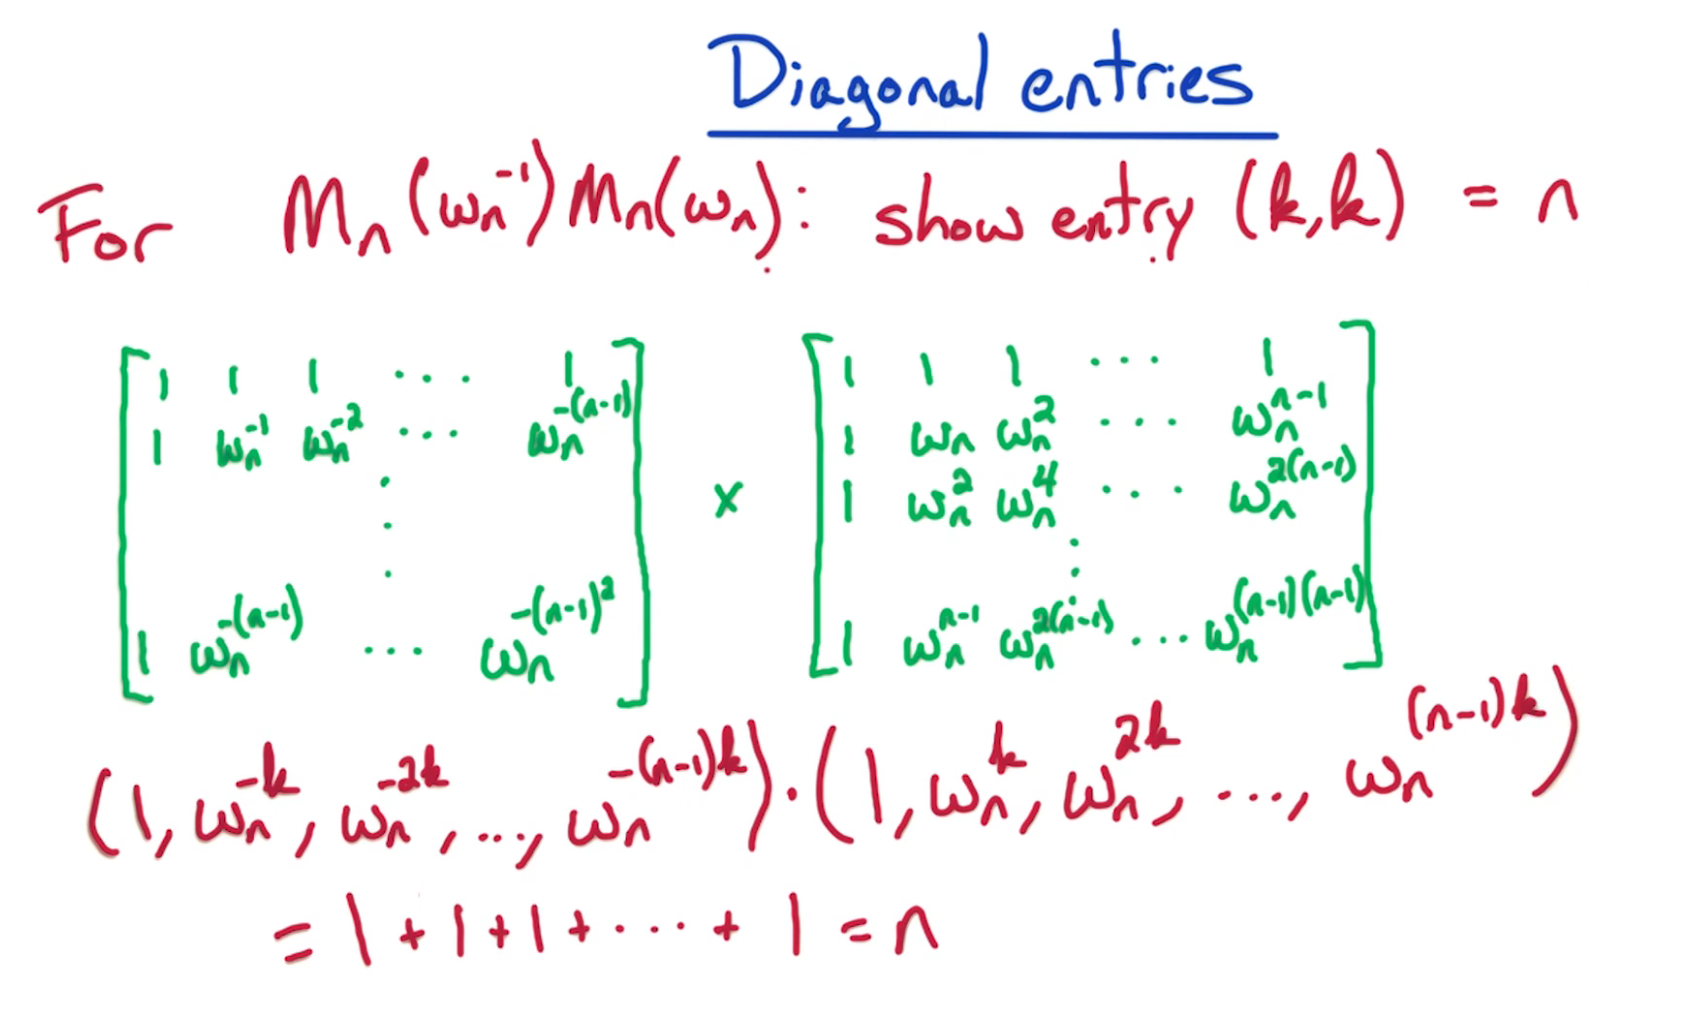 Diagonal entries
For Mₙ(ωₙ⁻¹)Mₙ(ωₙ): show entry (k,k) = n
[1 1 1 ... 1] × [1 1 1 ... 1]
[1 ωₙ^{-1} ωₙ^{-2} ... ωₙ^{-(n-1)}] [1 ωₙ ωₙ^{2} ... ωₙ^{n-1}]
[1 ωₙ^{2} ωₙ^{4} ... ωₙ^{2(n-1)}]
[1 ωₙ^{-(n-1)} ... ωₙ^{-(n-1)^2}] [1 ωₙ^{n-1} ωₙ^{2(n-1)} ... ωₙ^{(n-1)(n-1)}]
(1, ωₙ^{-k}, ωₙ^{-2k}, ..., ωₙ^{-(n-1)k}) · (1, ωₙ^{k}, ωₙ^{2k}, ..., ωₙ^{(n-1)k})
= 1 + 1 + 1 + ... + 1 = n